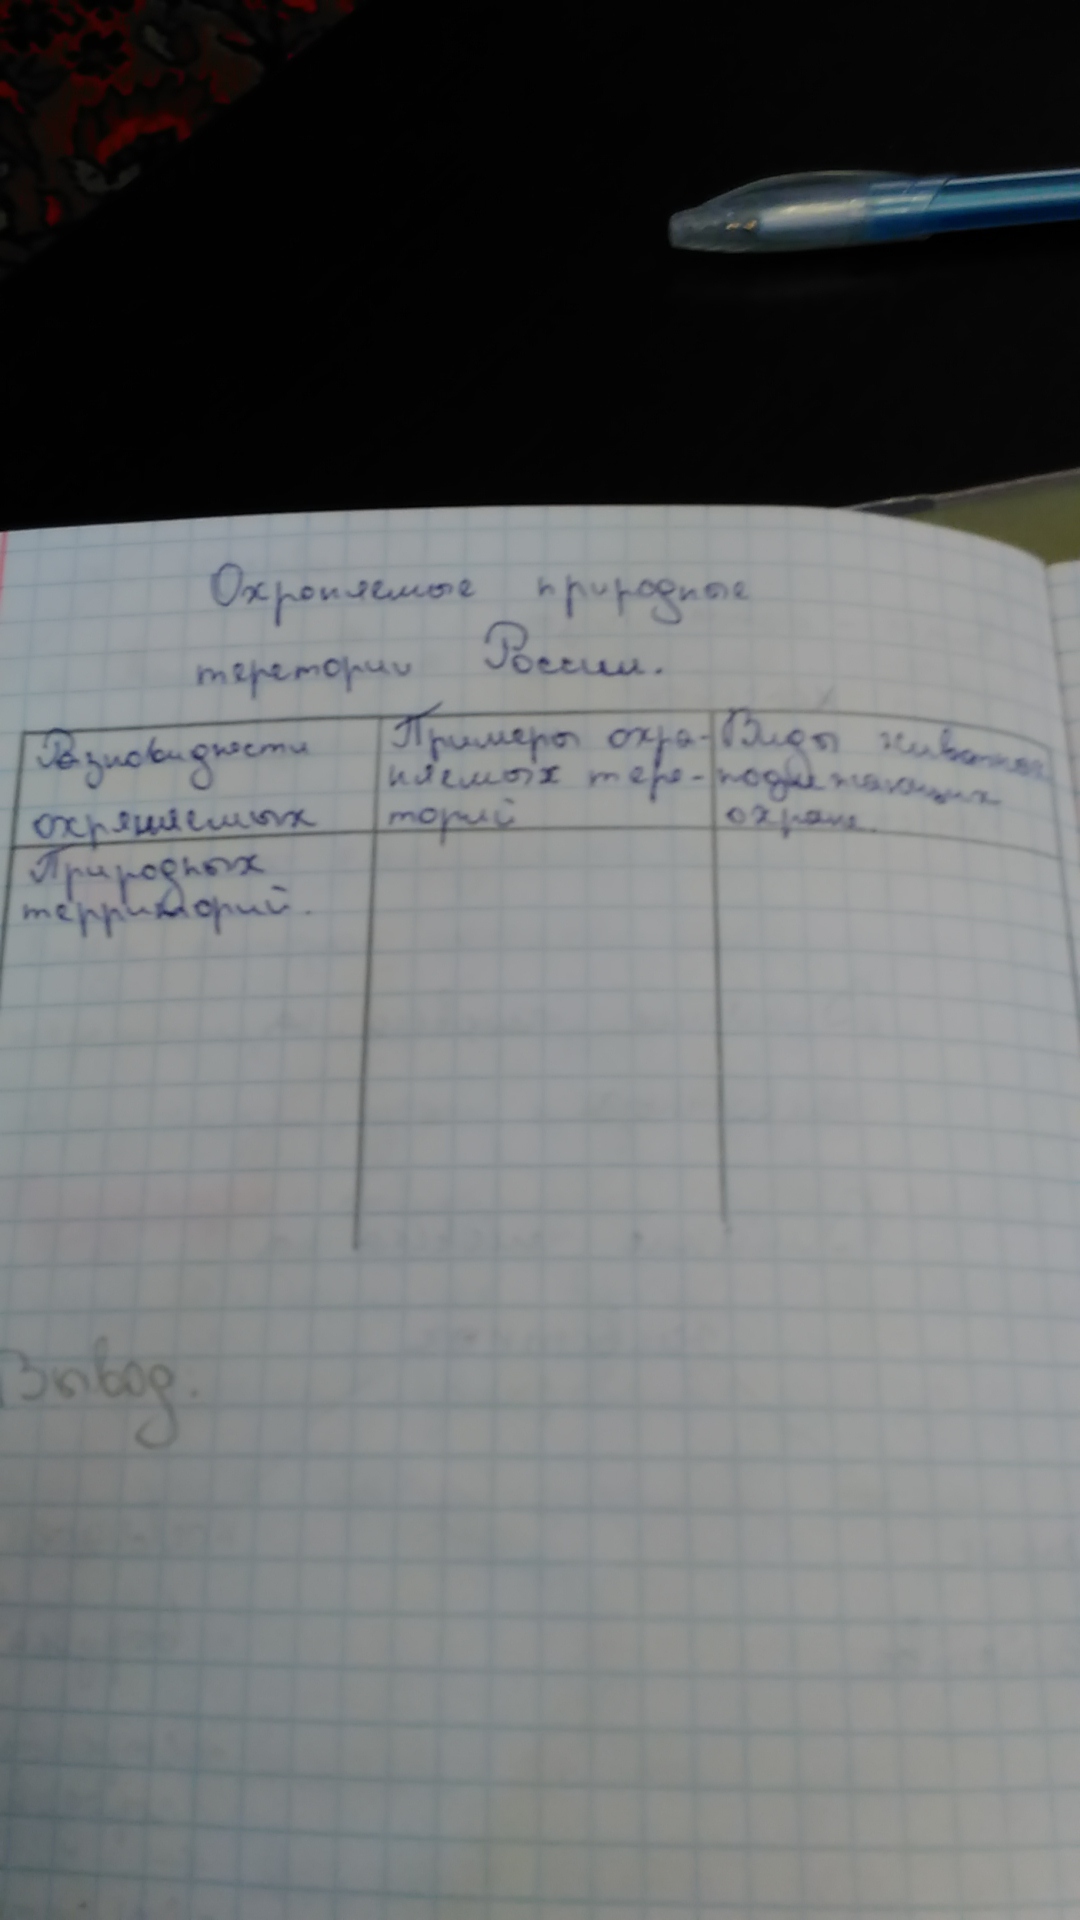 Охроняемые природные
теретории России.
Разновидности
охряняемых
Природных
территорий.
Примеры охра-
няемых тере-
торий
Виды животных
подлежающих
охране.
Вывод.